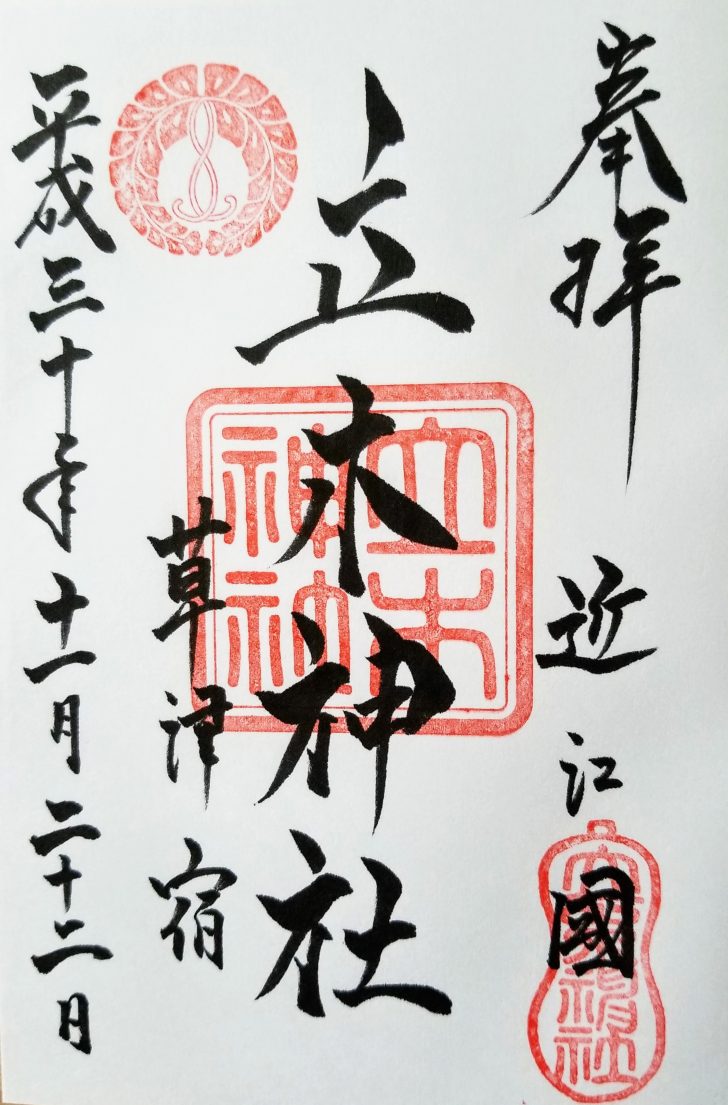 奉拝
近江國
立木神社
立木神社
草津宿
平成三十年十一月二十二日